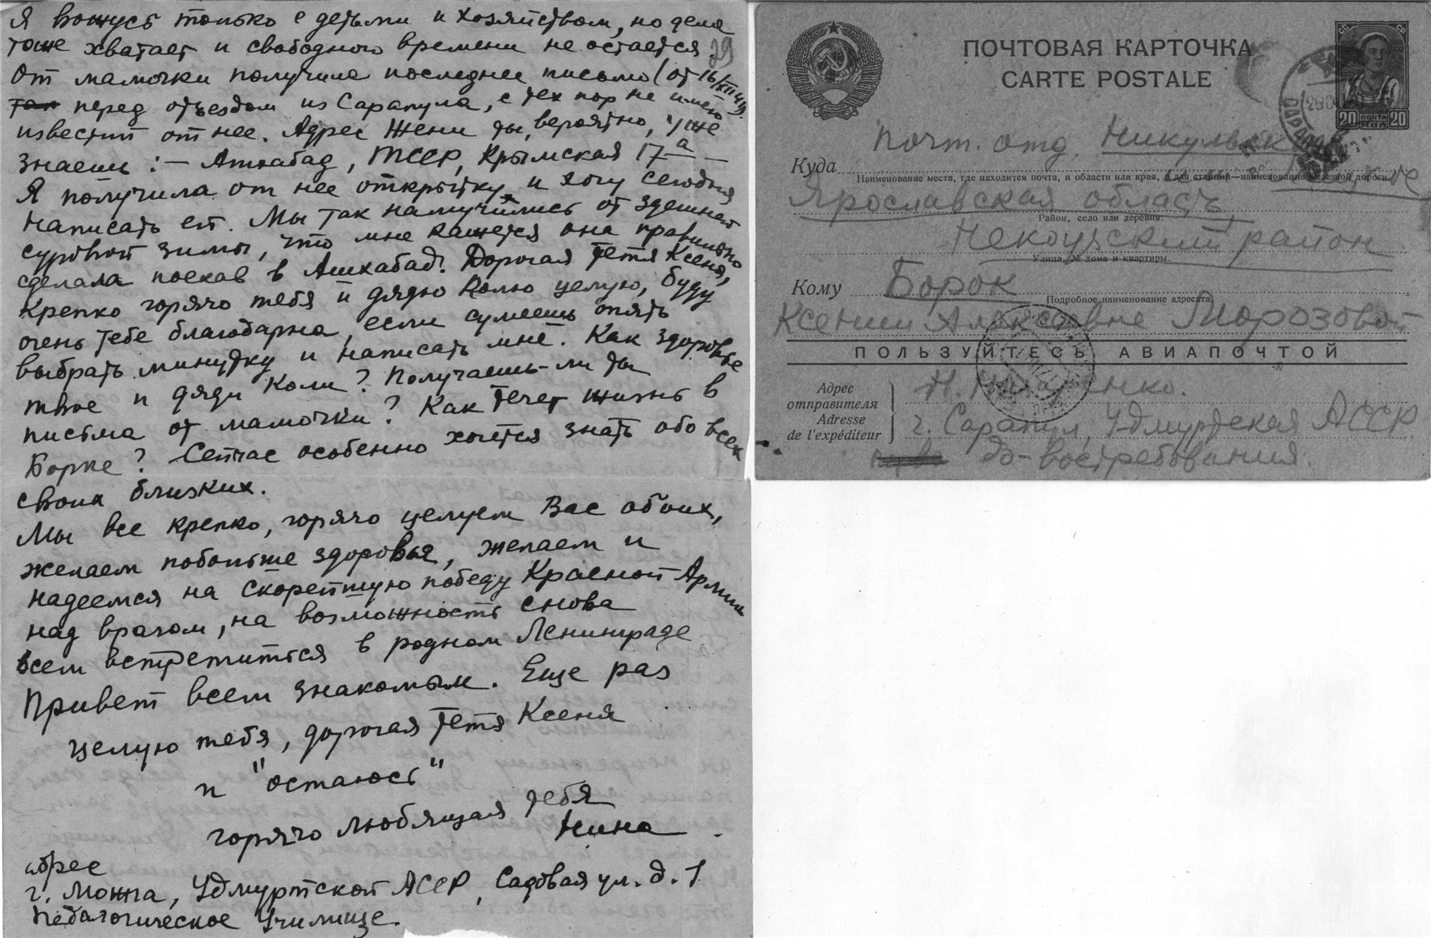 Я вожусь только с детьми и хозяйством, но дела
тоже хватает и свободного времени не остается
29
От мамочки получила последнее письмо (от 16/XII 41г.
перед отъездом из Сарапула, с тех пор не имею
известий от нее. Адрес Жени ты, вероятно, уже
знаешь: — Ашхабад, ТССР, Крымская 17 а —
Я получила от нее открытку и хочу сегодня
написать ей. Мы так намучились от здешней
суровой зимы, что мне кажется она правильно
сделала поехав в Ашхабад. Дорогая тетя Ксеня,
Крепко горячо тебя и дядю Колю целую, буду
очень тебе благодарна, если сумеешь опять
выбрать минутку и написать мне. Как здоровье
твое и дяди Коли? Получаешь-ли ты
письма от мамочки? Как течет жизнь в
Борке? Сейчас особенно хочется знать обо всех
своих близких.
Мы все крепко, горячо целуем Вас обоих,
желаем побольше здоровья, желаем и
надеемся на скорейшую победу Красной Армии
над врагом, на возможность снова
всем встретиться в родном Ленинграде
Привет всем знакомым. Еще раз
целую тебя, дорогая тетя Ксеня
и "остаюсь"
горячо любящая тебя
Нина
адрес
г. Можга, Удмуртской АССР, Садовая ул. д. 1
Педагогическое Училище.
ПОЧТОВАЯ КАРТОЧКА
CARTE POSTALE
20 ПОЧТА КОП. 20
Почт. отд.
Куда
Наименование места, где находится почта, и области или края, а для станций—наименование железной дороги
Ярославская область,
Район, село или деревня.
Некоузский район
Улица, № дома и квартиры.
Кому Борок
Подробное наименование адресата
Ксении Алексеевне Морозовой
ПОЛЬЗУЙТЕСЬ АВИАПОЧТОЙ
Адрес
отправителя
Adresse
de l'expéditeur
г. Сарапул, Удмуртская АССР
до-востребования.